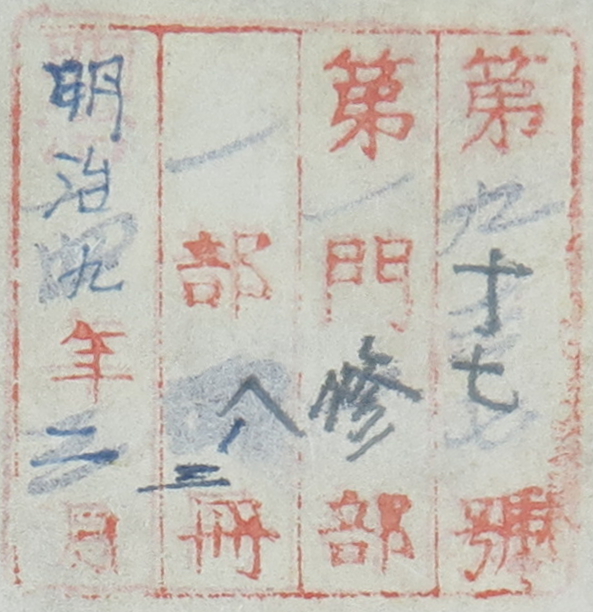 第十七號
第一門修部
一部八三冊
明治九年二月